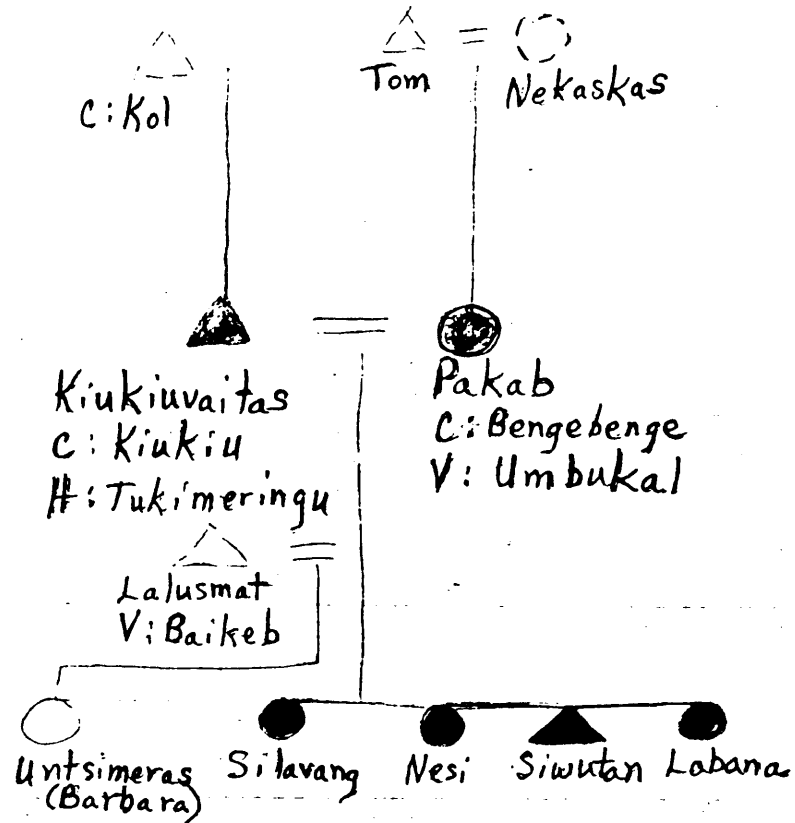 C: Kol
Tom
Nekaskas
Kiukiuvaitas
C: Kiukiu
H: Tukimeringu
Pakab
C: Bengebenge
V: Umbukal
Lalusmat
V: Baikeb
Untsimeras
(Barbara)
Silavang
Nesi
Siwutan
Labana